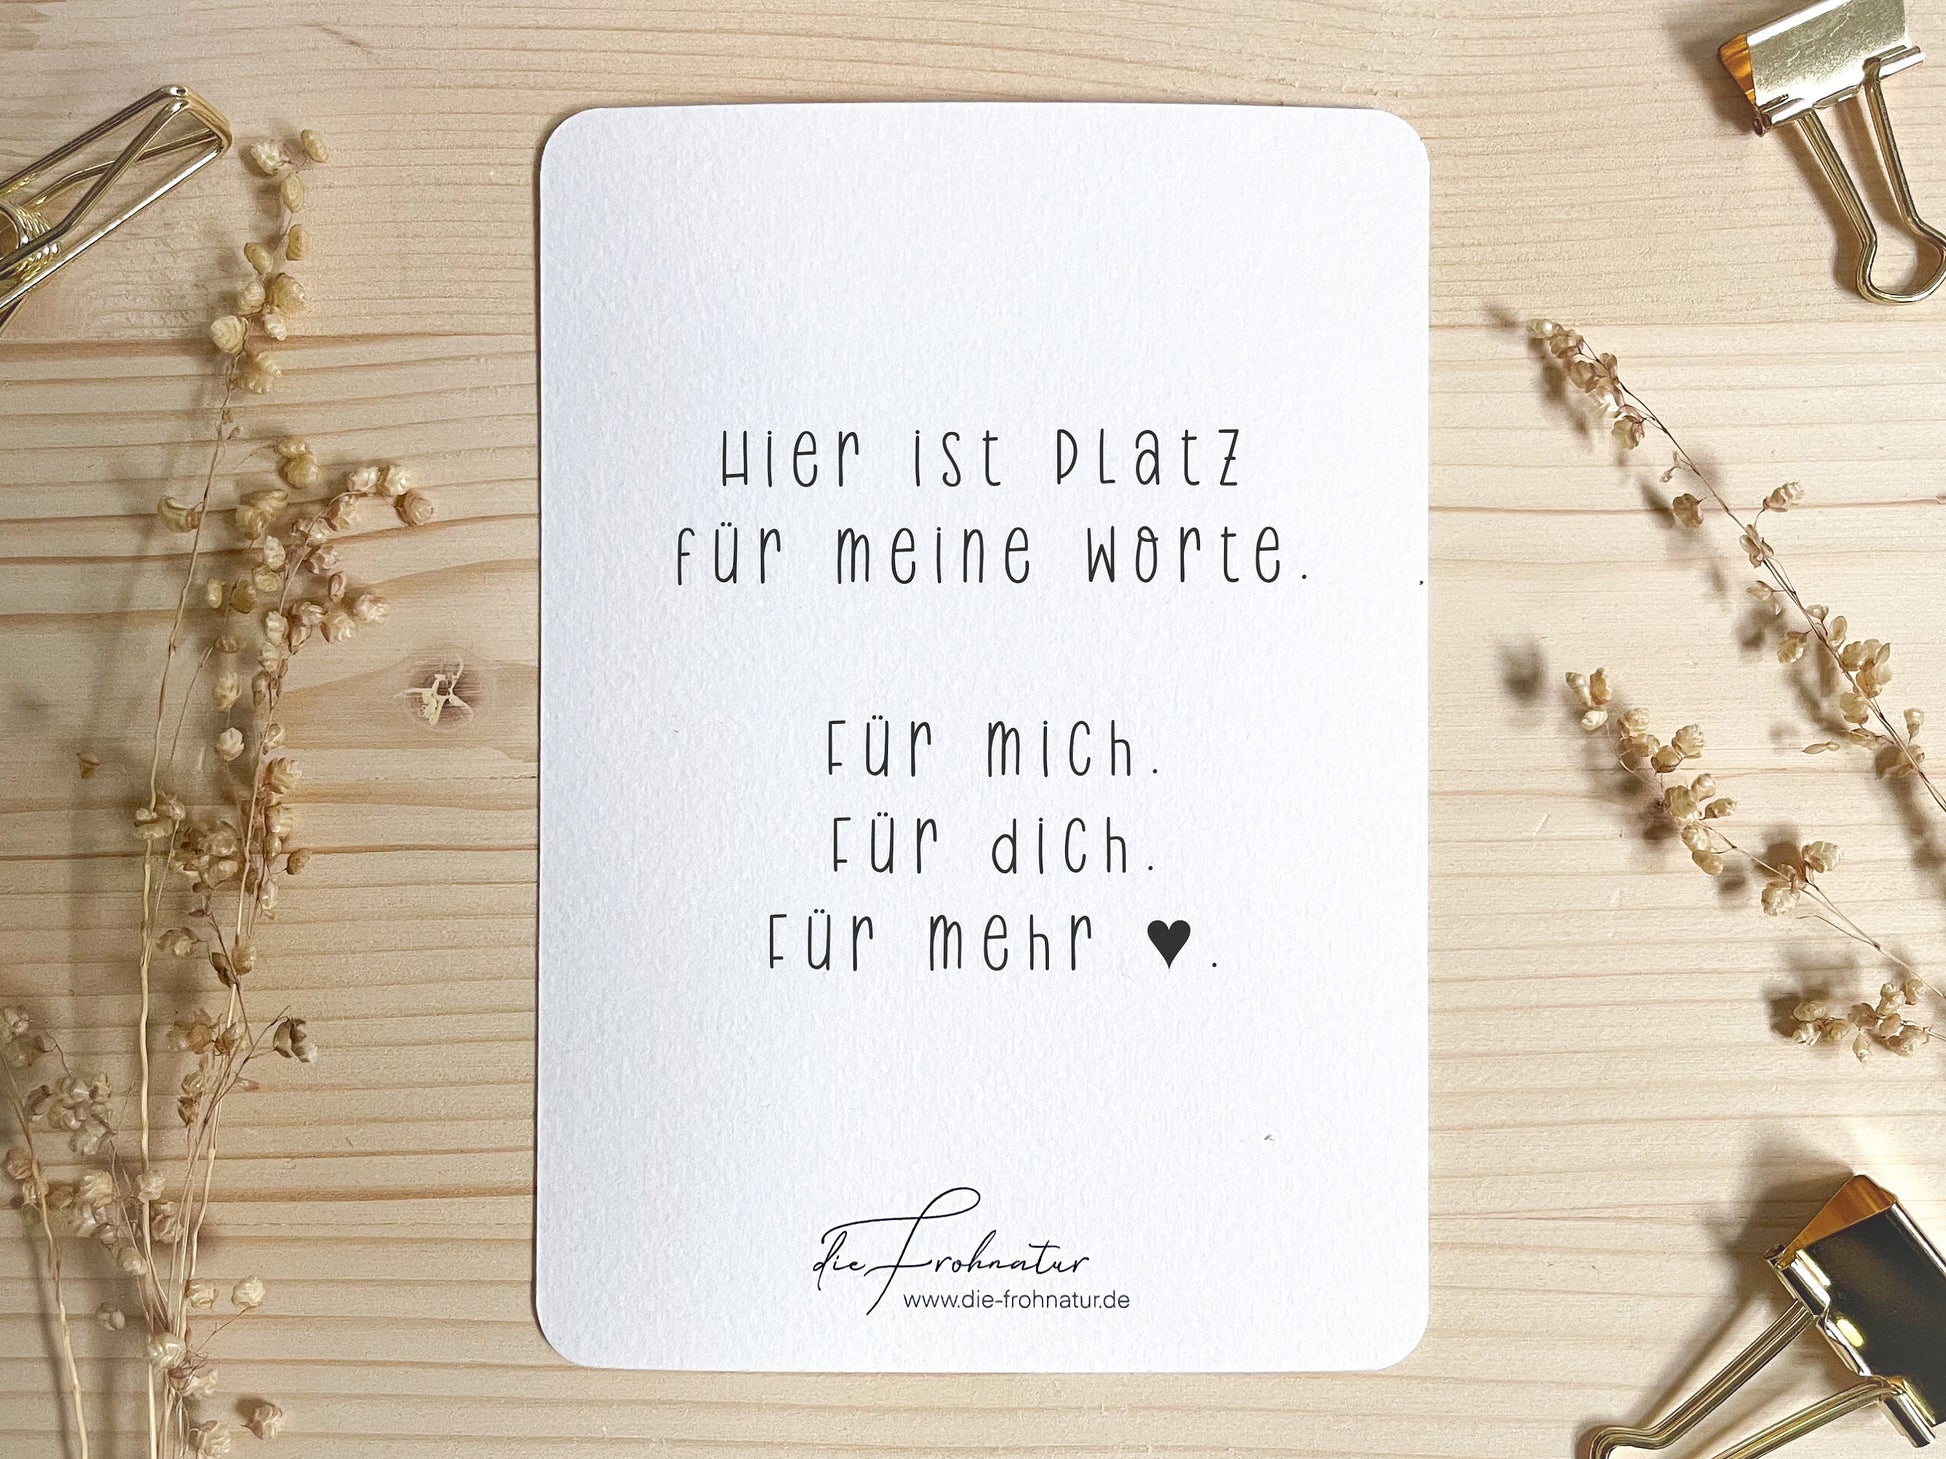 Hier ist Platz
für meine Worte.
Für mich.
Für dich.
Für mehr ♥.
die Frohnatur
www.die-frohnatur.de